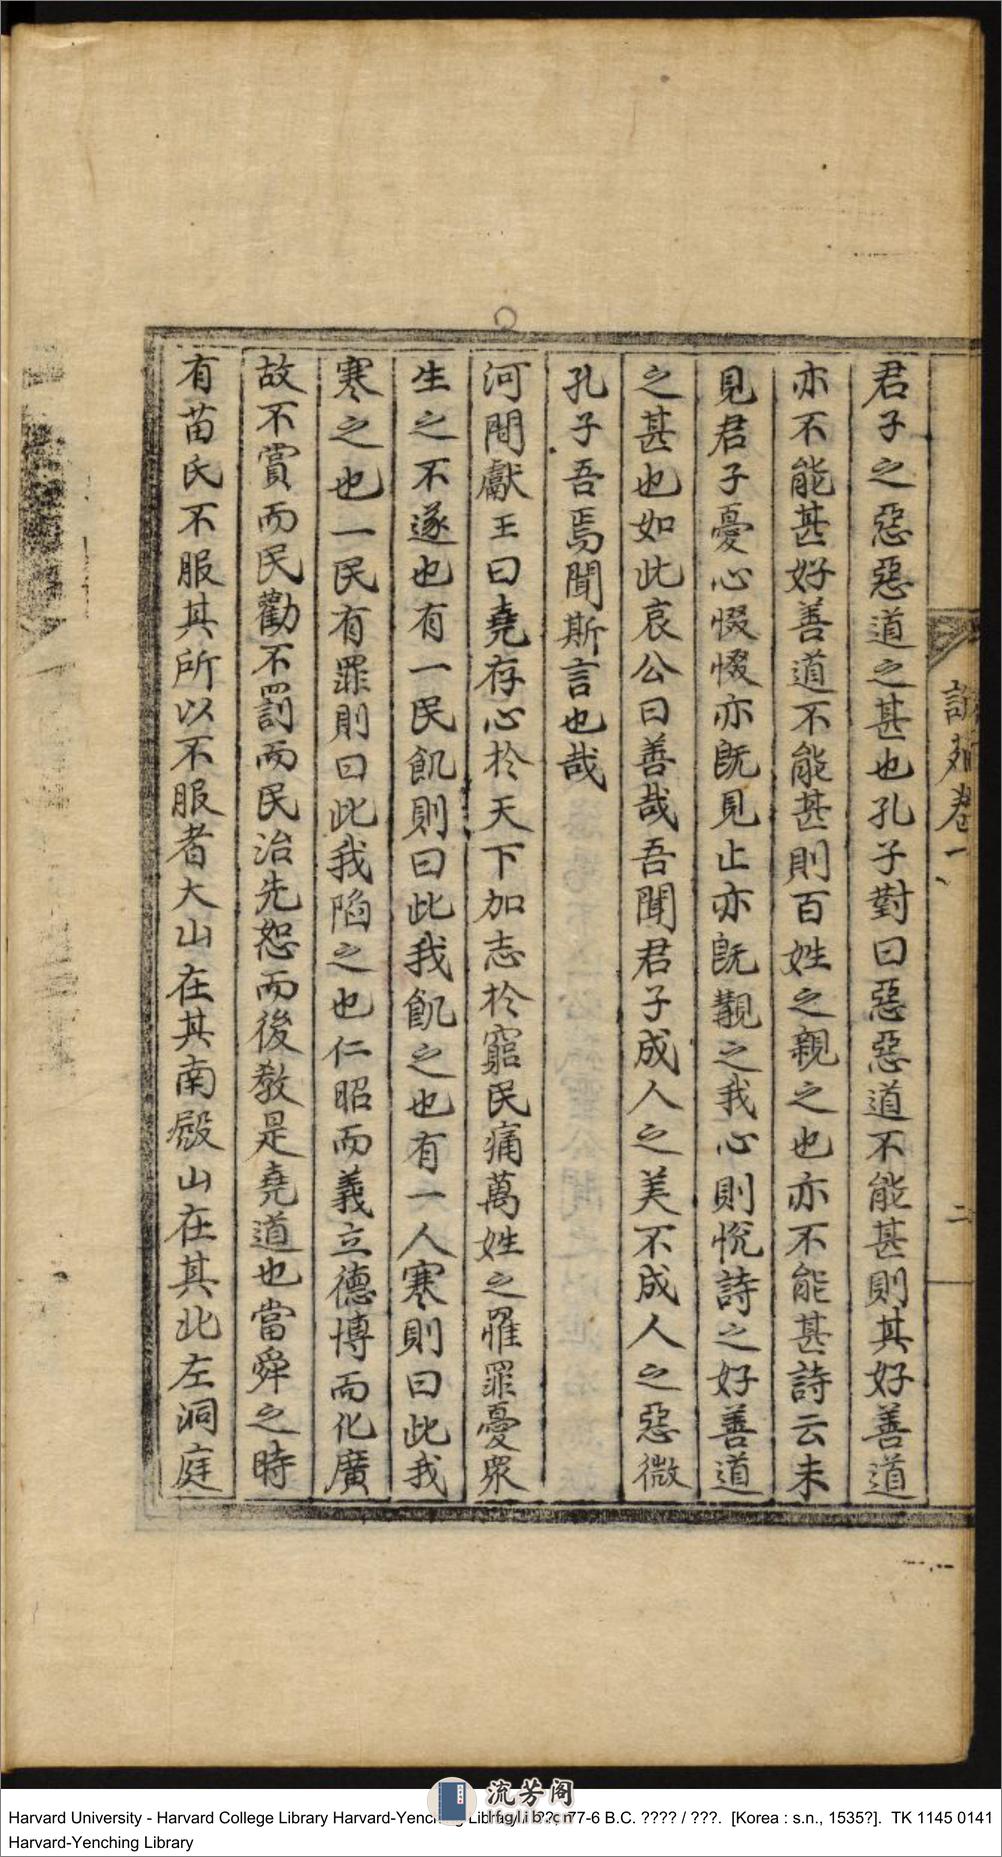 說苑卷一
二
君子之惡惡道之甚也孔子對曰惡惡道不能甚則其好善道
亦不能甚好善道不能甚則百姓之親之也亦不能甚詩云未
見君子憂心惙惙亦既見止亦既覯之我心則悅詩之好善道
之甚也如此哀公曰善哉吾聞君子成人之美不成人之惡微
孔子吾焉聞斯言也哉
河間獻王曰堯存心於天下加志於窮民痛萬姓之罹罪憂衆
生之不遂也有一民飢則曰此我飢之也有一人寒則曰此我
寒之也一民有罪則曰此我陷之也仁昭而義立德博而化廣
故不賞而民勸不罰而民治先恕而後教是堯道也當舜之時
有苗氏不服其所以不服者大山在其南殿山在其北左洞庭
流芳阁
Harvard University - Harvard College Library Harvard-Yenching Library / ??, 77-6 B.C. ???? / ???. [Korea : s.n., 1535?]. TK 1145 0141
Harvard-Yenching Library